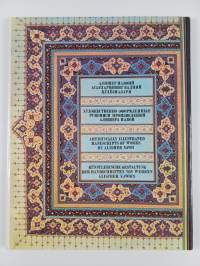 АЛИШЕР НАВОИЙ
АСАРЛАРИНИНГ БАДИИЙ
БЕЗАКЛАРИ
ХУДОЖЕСТВЕННО ОФОРМЛЕННЫЕ
РУКОПИСИ ПРОИЗВЕДЕНИЙ
АЛИШЕРА НАВОИ
ARTISTICALLY ILLUSTRATED
MANUSCRIPTS OF WORKS
BY ALISHER NAVOI
KÜNSTLERISCHE GESTALTUNG
DER HANDSCHRIFTEN VON WERKEN
ALISCHER NAWOIS